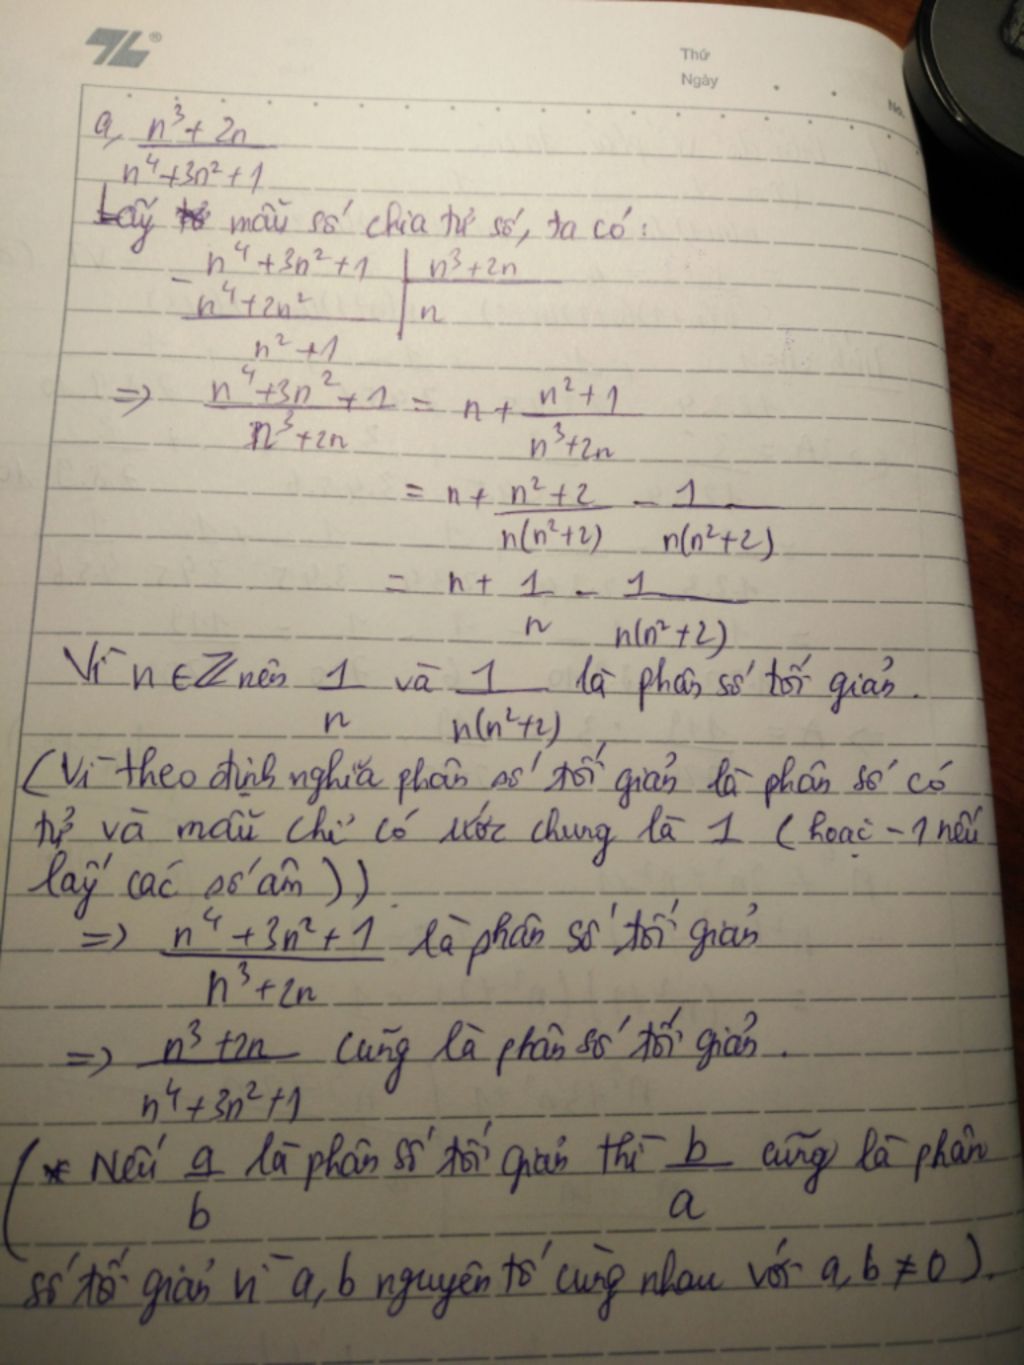 Thứ
Ngày
No.
a, n³ + 2n / n⁴ + 3n² + 1
Lấy mẫu số chia tử số, ta có:
n⁴ + 3n² + 1 | n³ + 2n
- n⁴ + 2n² | n
n² + 1
=> n⁴ + 3n² + 1 / n³ + 2n = n + n² + 1 / n³ + 2n
= n + n² + 2 / n(n² + 2) - 1 / n(n² + 2)
= n + 1 / n - 1 / n(n² + 2)
Vì n ∈ Z nên 1 / n và 1 / n(n² + 2) là phân số tối giản.
(Vì theo định nghĩa phân số tối giản là phân số có
tử và mẫu chỉ có ước chung là 1 (hoặc -1 nếu
lấy các số âm))
=> n⁴ + 3n² + 1 / n³ + 2n là phân số tối giản
=> n³ + 2n / n⁴ + 3n² + 1 cũng là phân số tối giản.
(* Nếu a / b là phân số tối giản thì b / a cũng là phân
số tối giản vì a, b nguyên tố cùng nhau với a, b ≠ 0).